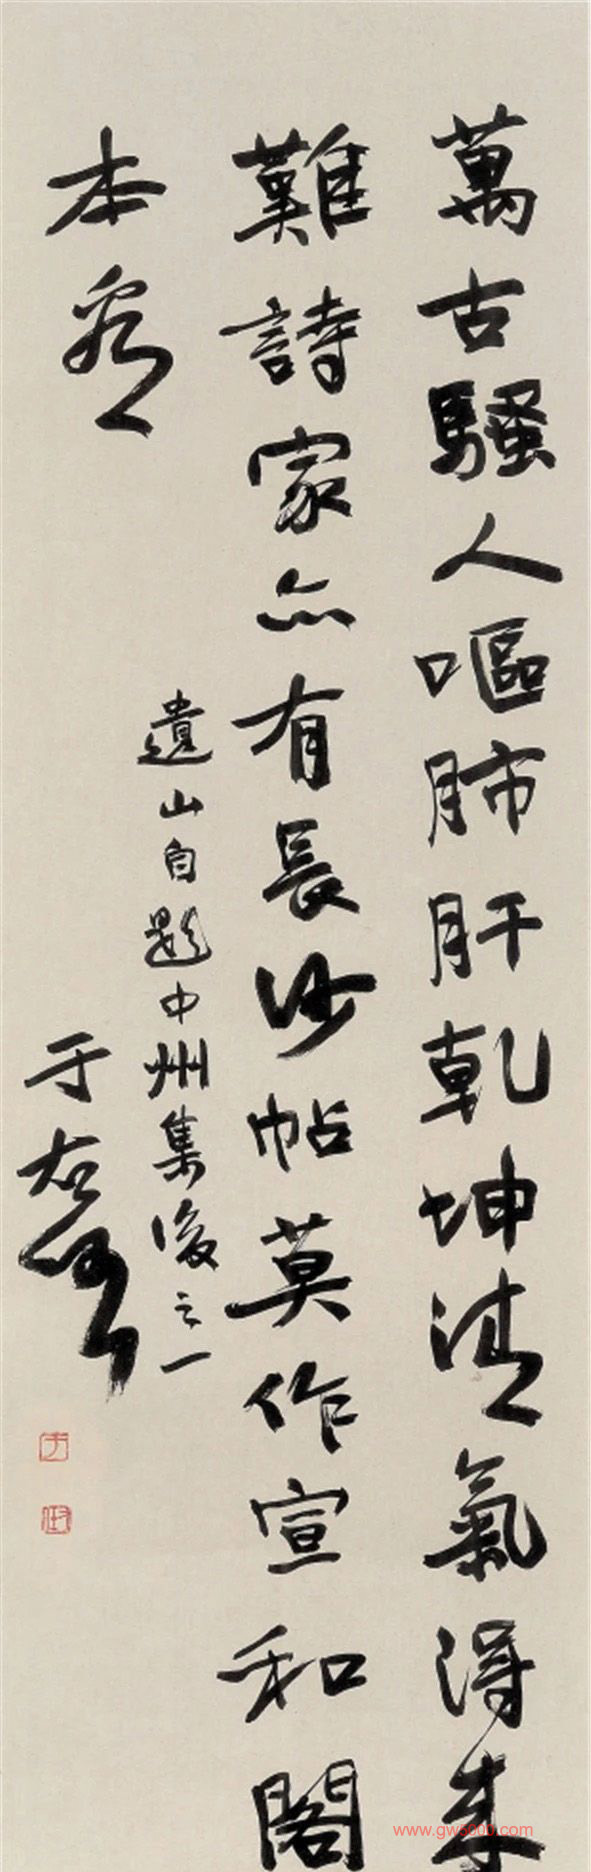 萬古騷人嘔肺肝乾坤清氣得來
難詩家亦有長沙帖莫作宣和閣
本看
遺山自題中州集後之一
于右任
www.gw5000.com